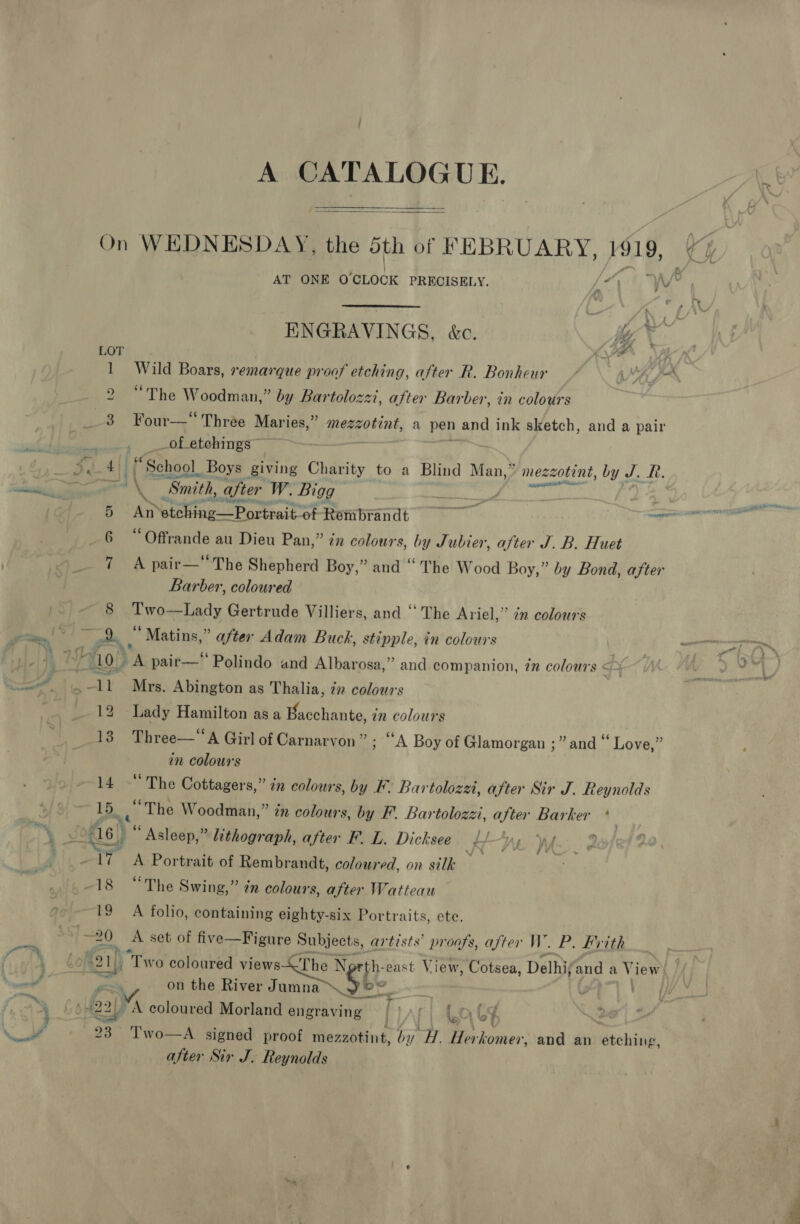 A CATALOGUE.
On WEDNESDAY, the 5th of FEBRUARY, 1919,
AT ONE O'CLOCK PRECISELY.
ENGRAVINGS, &c.
LOT
1 Wild Boars, remarque proof etching, after R. Bonheur
2 "The Woodman," by Bartolozzi, after Barber, in colours
3 Four—"Three Maries," mezzotint, a pen and ink sketch, and a pair
of etchings
4 "School Boys giving Charity to a Blind Man," mezzotint, by J. R.
Smith, after W. Bigg
5 An etching—Portrait of Rembrandt
6 "Offrande au Dieu Pan," in colours, by Jubier, after J. B. Huet
7 A pair—"The Shepherd Boy," and "The Wood Boy," by Bond, after
Barber, coloured
8 Two—Lady Gertrude Villiers, and "The Ariel," in colours
9 "Matins," after Adam Buck, stipple, in colours
10 A pair—"Polindo and Albarosa," and companion, in colours
11 Mrs. Abington as Thalia, in colours
12 Lady Hamilton as a Bacchante, in colours
13 Three—"A Girl of Carnarvon"; "A Boy of Glamorgan;" and "Love,"
in colours
14 "The Cottagers," in colours, by F. Bartolozzi, after Sir J. Reynolds
15 "The Woodman," in colours, by F. Bartolozzi, after Barker
16 "Asleep," lithograph, after F. L. Dicksee
17 A Portrait of Rembrandt, coloured, on silk
18 "The Swing," in colours, after Watteau
19 A folio, containing eighty-six Portraits, etc.
20 A set of five—Figure Subjects, artists' proofs, after W. P. Frith
21 Two coloured views—The North-east View, Cotsea, Delhi, and a View
on the River Jumna
22 A coloured Morland engraving
23 Two—A signed proof mezzotint, by H. Herkomer, and an etching,
after Sir J. Reynolds